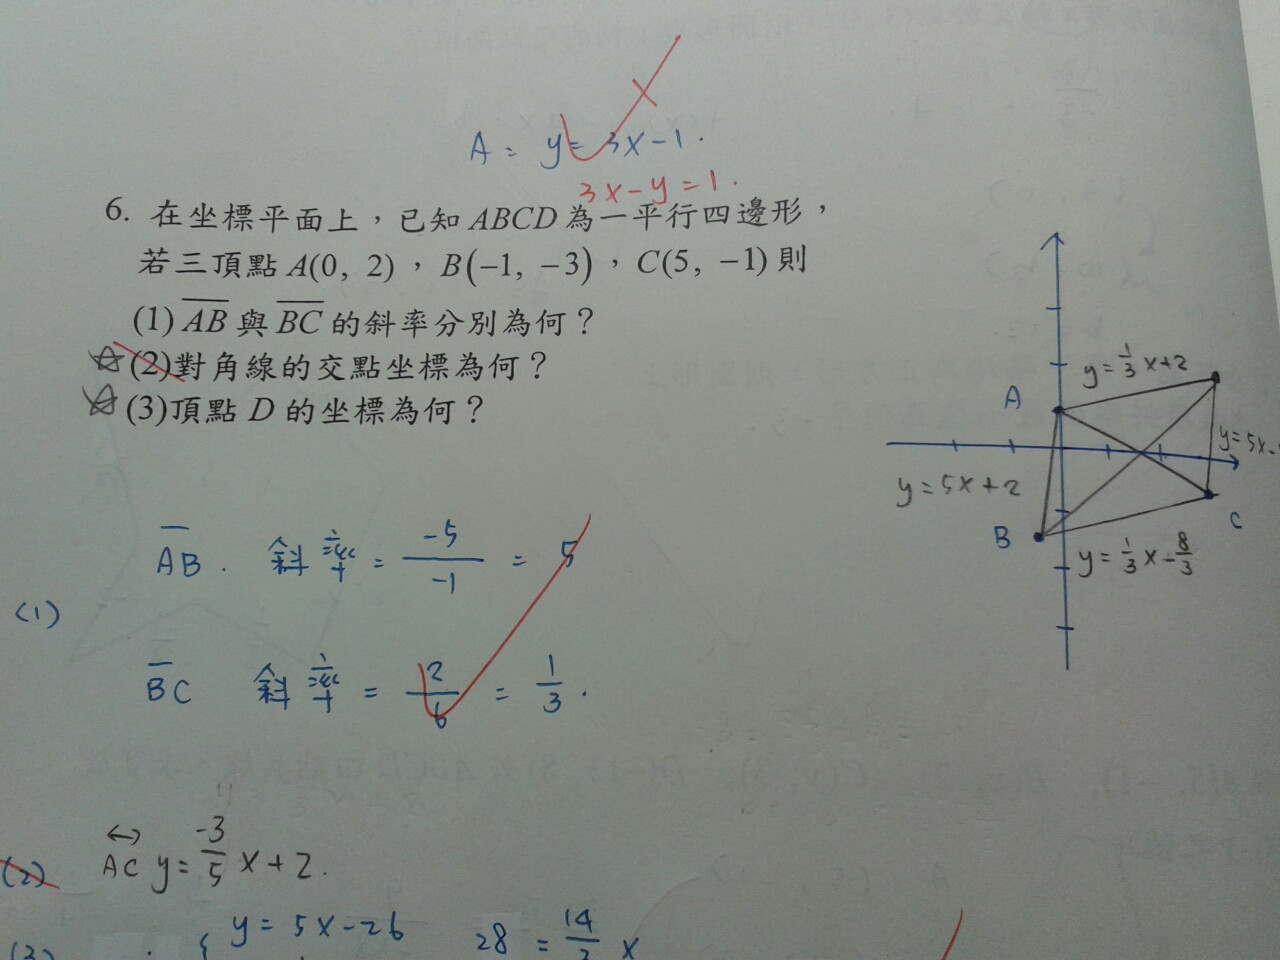 A = y = 3x-1.
3x-y=1.
6. 在坐標平面上，已知 ABCD 為一平行四邊形，
若三頂點 A(0, 2)，B(-1, -3)，C(5, -1) 則
(1) AB 與 BC 的斜率分別為何？
(2)對角線的交點坐標為何？
(3)頂點 D 的坐標為何？
y=1/3x+2
A
y=5x-
y=5x+2
C
B
y=1/3x-8/3
(1)
AB. 斜率 = -5/-1 = 5
BC 斜率 = 2/6 = 1/3.
(2) AC y=-3/5x+2.
(3) { y= 5x-26 28 = 14/3 x